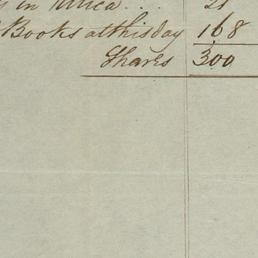 in Utica . . .
Books at this day 168
Shares 300